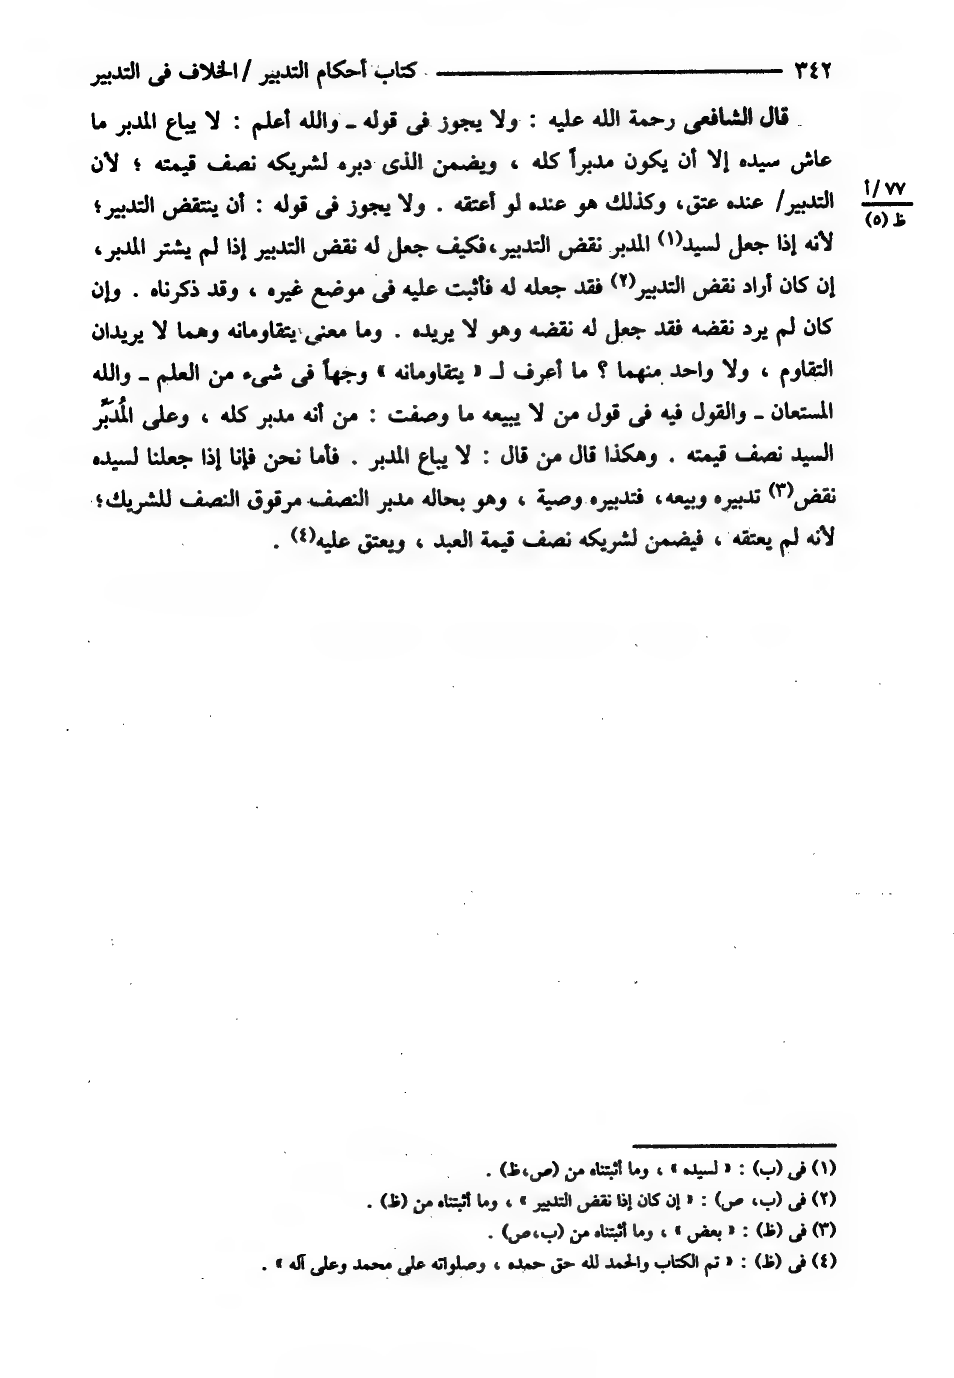 ٣٤٢ ــــــــــــــــ كتاب أحكام التدبير / الخلاف فى التدبير
قال الشافعى رحمة الله عليه : ولا يجوز فى قوله ـ والله أعلم : لا يباع المدبر ما
عاش سيده إلا أن يكون مدبراً كله ، ويضمن الذى دبره لشريكه نصف قيمته ؛ لأن
٧٧/أ
ظ (٥)
التدبير/ عنده عتق، وكذلك هو عنده لو أعتقه . ولا يجوز فى قوله : أن ينتقض التدبير؛
لأنه إذا جعل لسيد(١) المدبر نقض التدبير، فكيف جعل له نقض التدبير إذا لم يشتر المدبر،
إن كان أراد نقض التدبير(٢) فقد جعله له فأثبت عليه فى موضع غيره ، وقد ذكرناه . وإن
كان لم يرد نقضه فقد جعل له نقضه وهو لا يريده . وما معنى يتقاومانه وهما لا يريدان
التقاوم ، ولا واحد منهما ؟ ما أعرف لـ « يتقاومانه » وجهاً فى شىء من العلم ـ والله
المستعان ـ والقول فيه فى قول من لا يبيعه ما وصفت : من أنه مدبر كله ، وعلى المُدَبِّر
السيد نصف قيمته . وهكذا قال من قال : لا يباع المدبر . فأما نحن فإنا إذا جعلنا لسيده
نقض(٣) تدبيره وبيعه، فتدبيره وصية ، وهو بحاله مدبر النصف مرقوق النصف للشريك؛
لأنه لم يعتقه ، فيضمن لشريكه نصف قيمة العبد ، ويعتق عليه(٤) .
(١) فى (ب) : « لسيده » ، وما أثبتناه من (ص،ظ) .
(٢) فى (ب، ص) : « إن كان إذا نقض التدبير » ، وما أثبتناه من (ظ) .
(٣) فى (ظ) : « بعض » ، وما أثبتناه من (ب،ص) .
(٤) فى (ظ) : « تم الكتاب والحمد لله حق حمده ، وصلواته على محمد وعلى آله » .